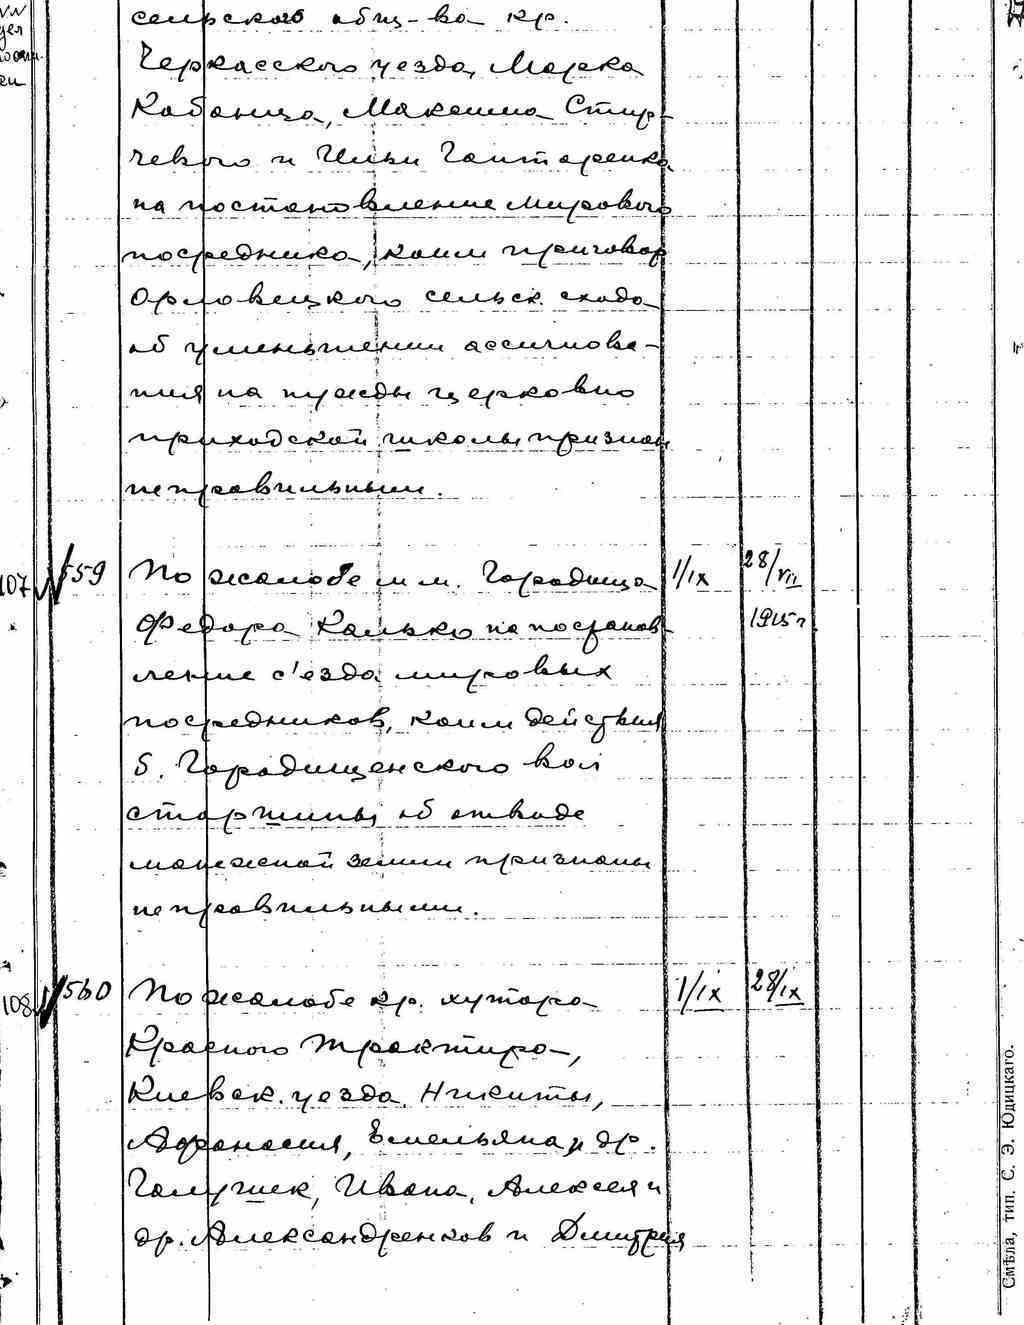 сельского общ-ва кр.
Черкасского уезда, Марка
Кабанца, Максима Стир-
чевого и Ильи Гайтаренка
на постановление мирового
посредника, коим приговор
Орловецкого сельск. схода
об уменьшении ассигнова-
ния на нужды церковно
приходской школы признан
неправильным.
107 559 По жалобе м м. Городища 1/IX 28/VII
Федора Калько на постанов- 1915 г.
ление с'езда мировых
посредников, коим действия
б. Городищенского вол
старшины об отводе
манежной земли признаны
неправильными.
108 560 По жалобе кр. хутора 1/IX 28/IX
Красного Трактира,
Киевск. уезда Никиты,
Афанасия, Емельяна и др.
Галушек, Ивана, Алексея и
др. Александренков и Дмитрия
Смѣла, тип. С. Э. Юдицкаго.